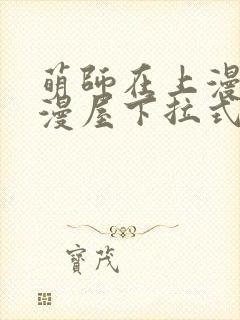 萌師在上漫
漫屋下拉式
寶茂